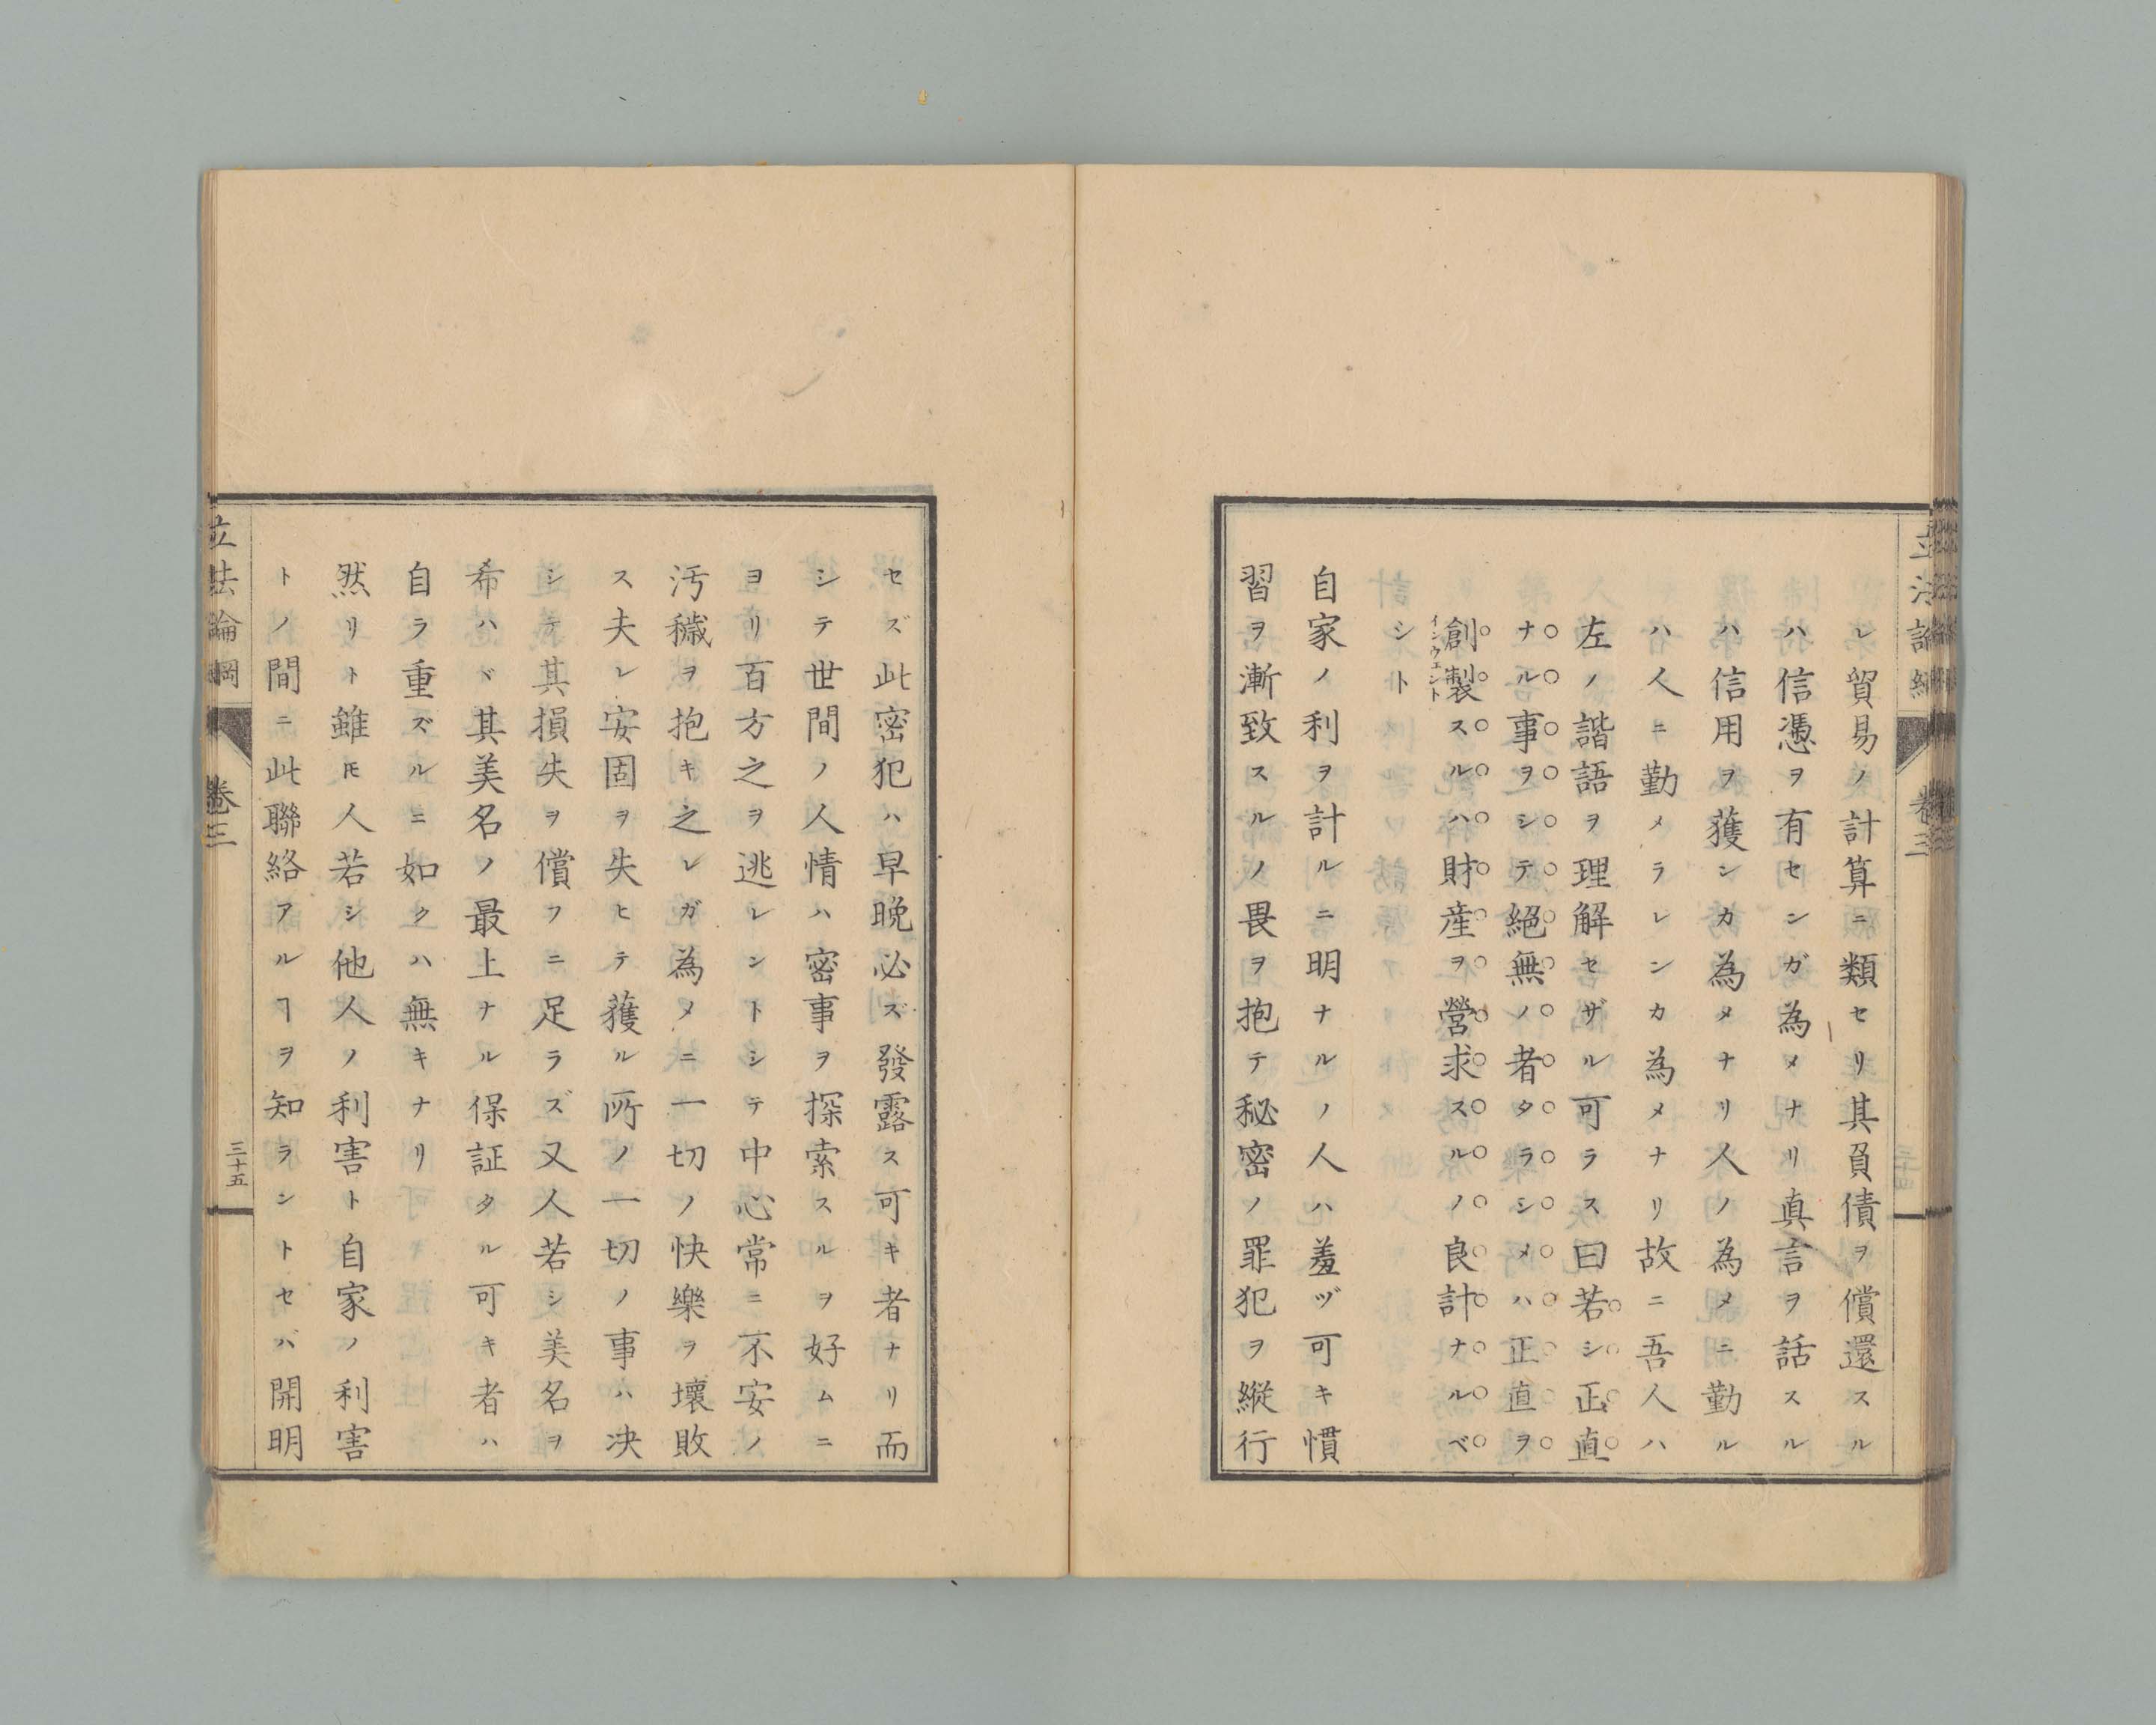 立法論綱 卷三
レ貿易ノ計算ニ類セリ其負債ヲ償還スル
ハ信憑ヲ有センガ為メナリ真言ヲ話スル
ハ信用ヲ獲ンカ為メナリ人ノ為メニ勤ル
ハ人ニ勤メラレンカ為メナリ故ニ吾人ハ
左ノ諧語ヲ理解セザル可ラス曰若シ正直
ナル事ヲシテ絕無ノ者タラシメハ正直ヲ
創製スルハ財産ヲ營求スルノ良計ナルベ
インウエント
シト
自家ノ利ヲ計ルニ明ナルノ人ハ羞ヅ可キ慣
習ヲ漸致スルノ畏ヲ抱テ秘密ノ罪犯ヲ縦行
セズ此密犯ハ早晚必ズ發露ス可キ者ナリ而
シテ世間ノ人情ハ密事ヲ探索スルヲ好ムニ
ヨリ百方之ヲ逃レントシテ中心常ニ不安ノ
汚穢ヲ抱キ之レガ為メニ一切ノ快樂ヲ壞敗
ス夫レ安固ヲ失ヒテ獲ル所ノ一切ノ事ハ决
シテ其損失ヲ償フニ足ラズ又人若シ美名ヲ
希ハヾ其美名ノ最上ナル保証タル可キ者ハ
自ラ重ズルニ如クハ無キナリ
然リト雖𪜈人若シ他人ノ利害ト自家ノ利害
トノ間ニ此聯絡アルヿヲ知ラントセバ開明
立法論綱 卷三 三十五